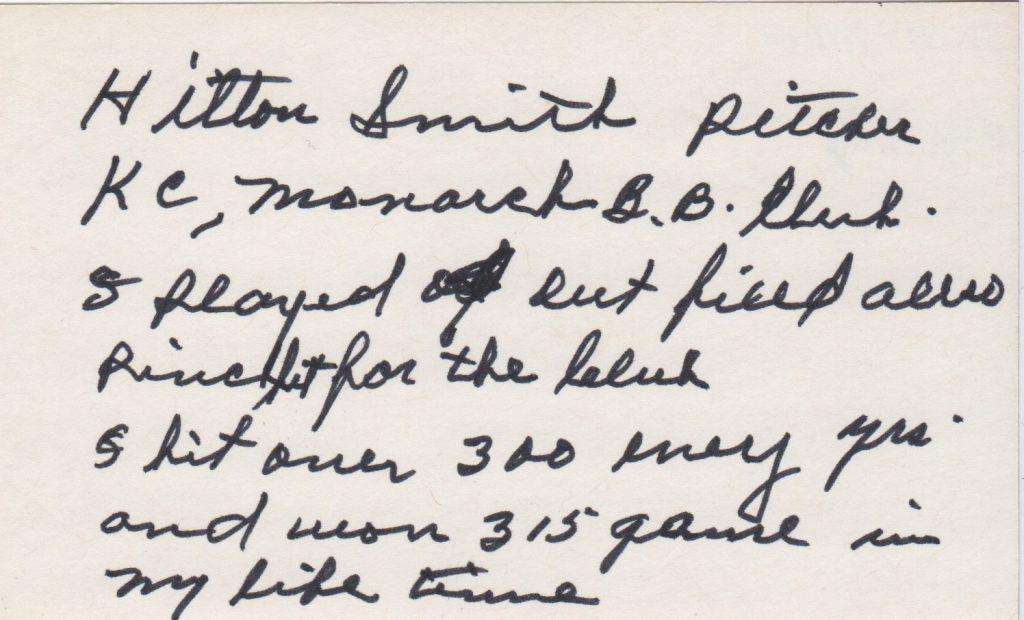 Hilton Smith Pitcher
KC, Monarch B.B. Club.
I played out field also
Pinch hit for the Club
I hit over 300 every yrs.
and won 315 game in
my life time